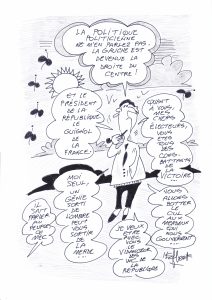 LA POLITIQUE
POLITICIENNE
NE M'EN PARLEZ PAS.
LA GAUCHE EST
DEVENUE LA
DROITE DU
CENTRE!
ET LE
PRÉSIDENT
DE LA
RÉPUBLIQUE
LE
GUIGNOL
DE LA
FRANCE.
QUANT
À VOUS,
MES CHERS
ÉLECTEURS,
VOUS
ÊTES
TOUS
DES
COMBATTANTS
DE LA
VICTOIRE
MOI
SEUL,
UN
GÉNIE
SORTI
DE
L'OMBRE
PEUT
VOUS
SORTIR
DE LA
MERDE
IL
SAIT
PARLER
AU
PEUPLE
CE
MEC
JE VEUX
ÊTRE
AVEC
VOUS
LE
VIDANGEUR
DES
WC
DE LA
RÉPUBLIQUE
NOUS
ALLONS
BOTTER
LE
CUL
AUX
MERDEUX
QUI
NOUS
GOUVERNENT